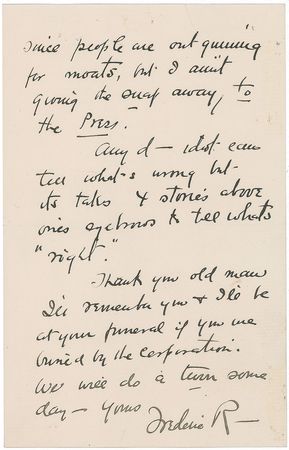 since people are out gunning
for moats, but I ain't
giving the snap away, to
the Press.
Any d— idiot can
tell what's wrong but
its takes 4 stories above
ones eyebrows to tell what's
"right."
Thank you old man
I'll remember you & I'll be
at your funeral if you are
buried by the Corporation.
We will do a turn some
day— Yours
Frederic R—